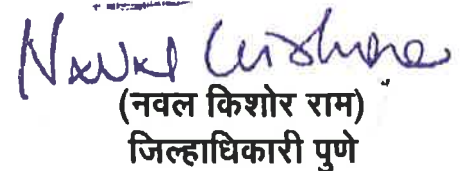 Naval Kishore
(नवल किशोर राम)
जिल्हाधिकारी पुणे